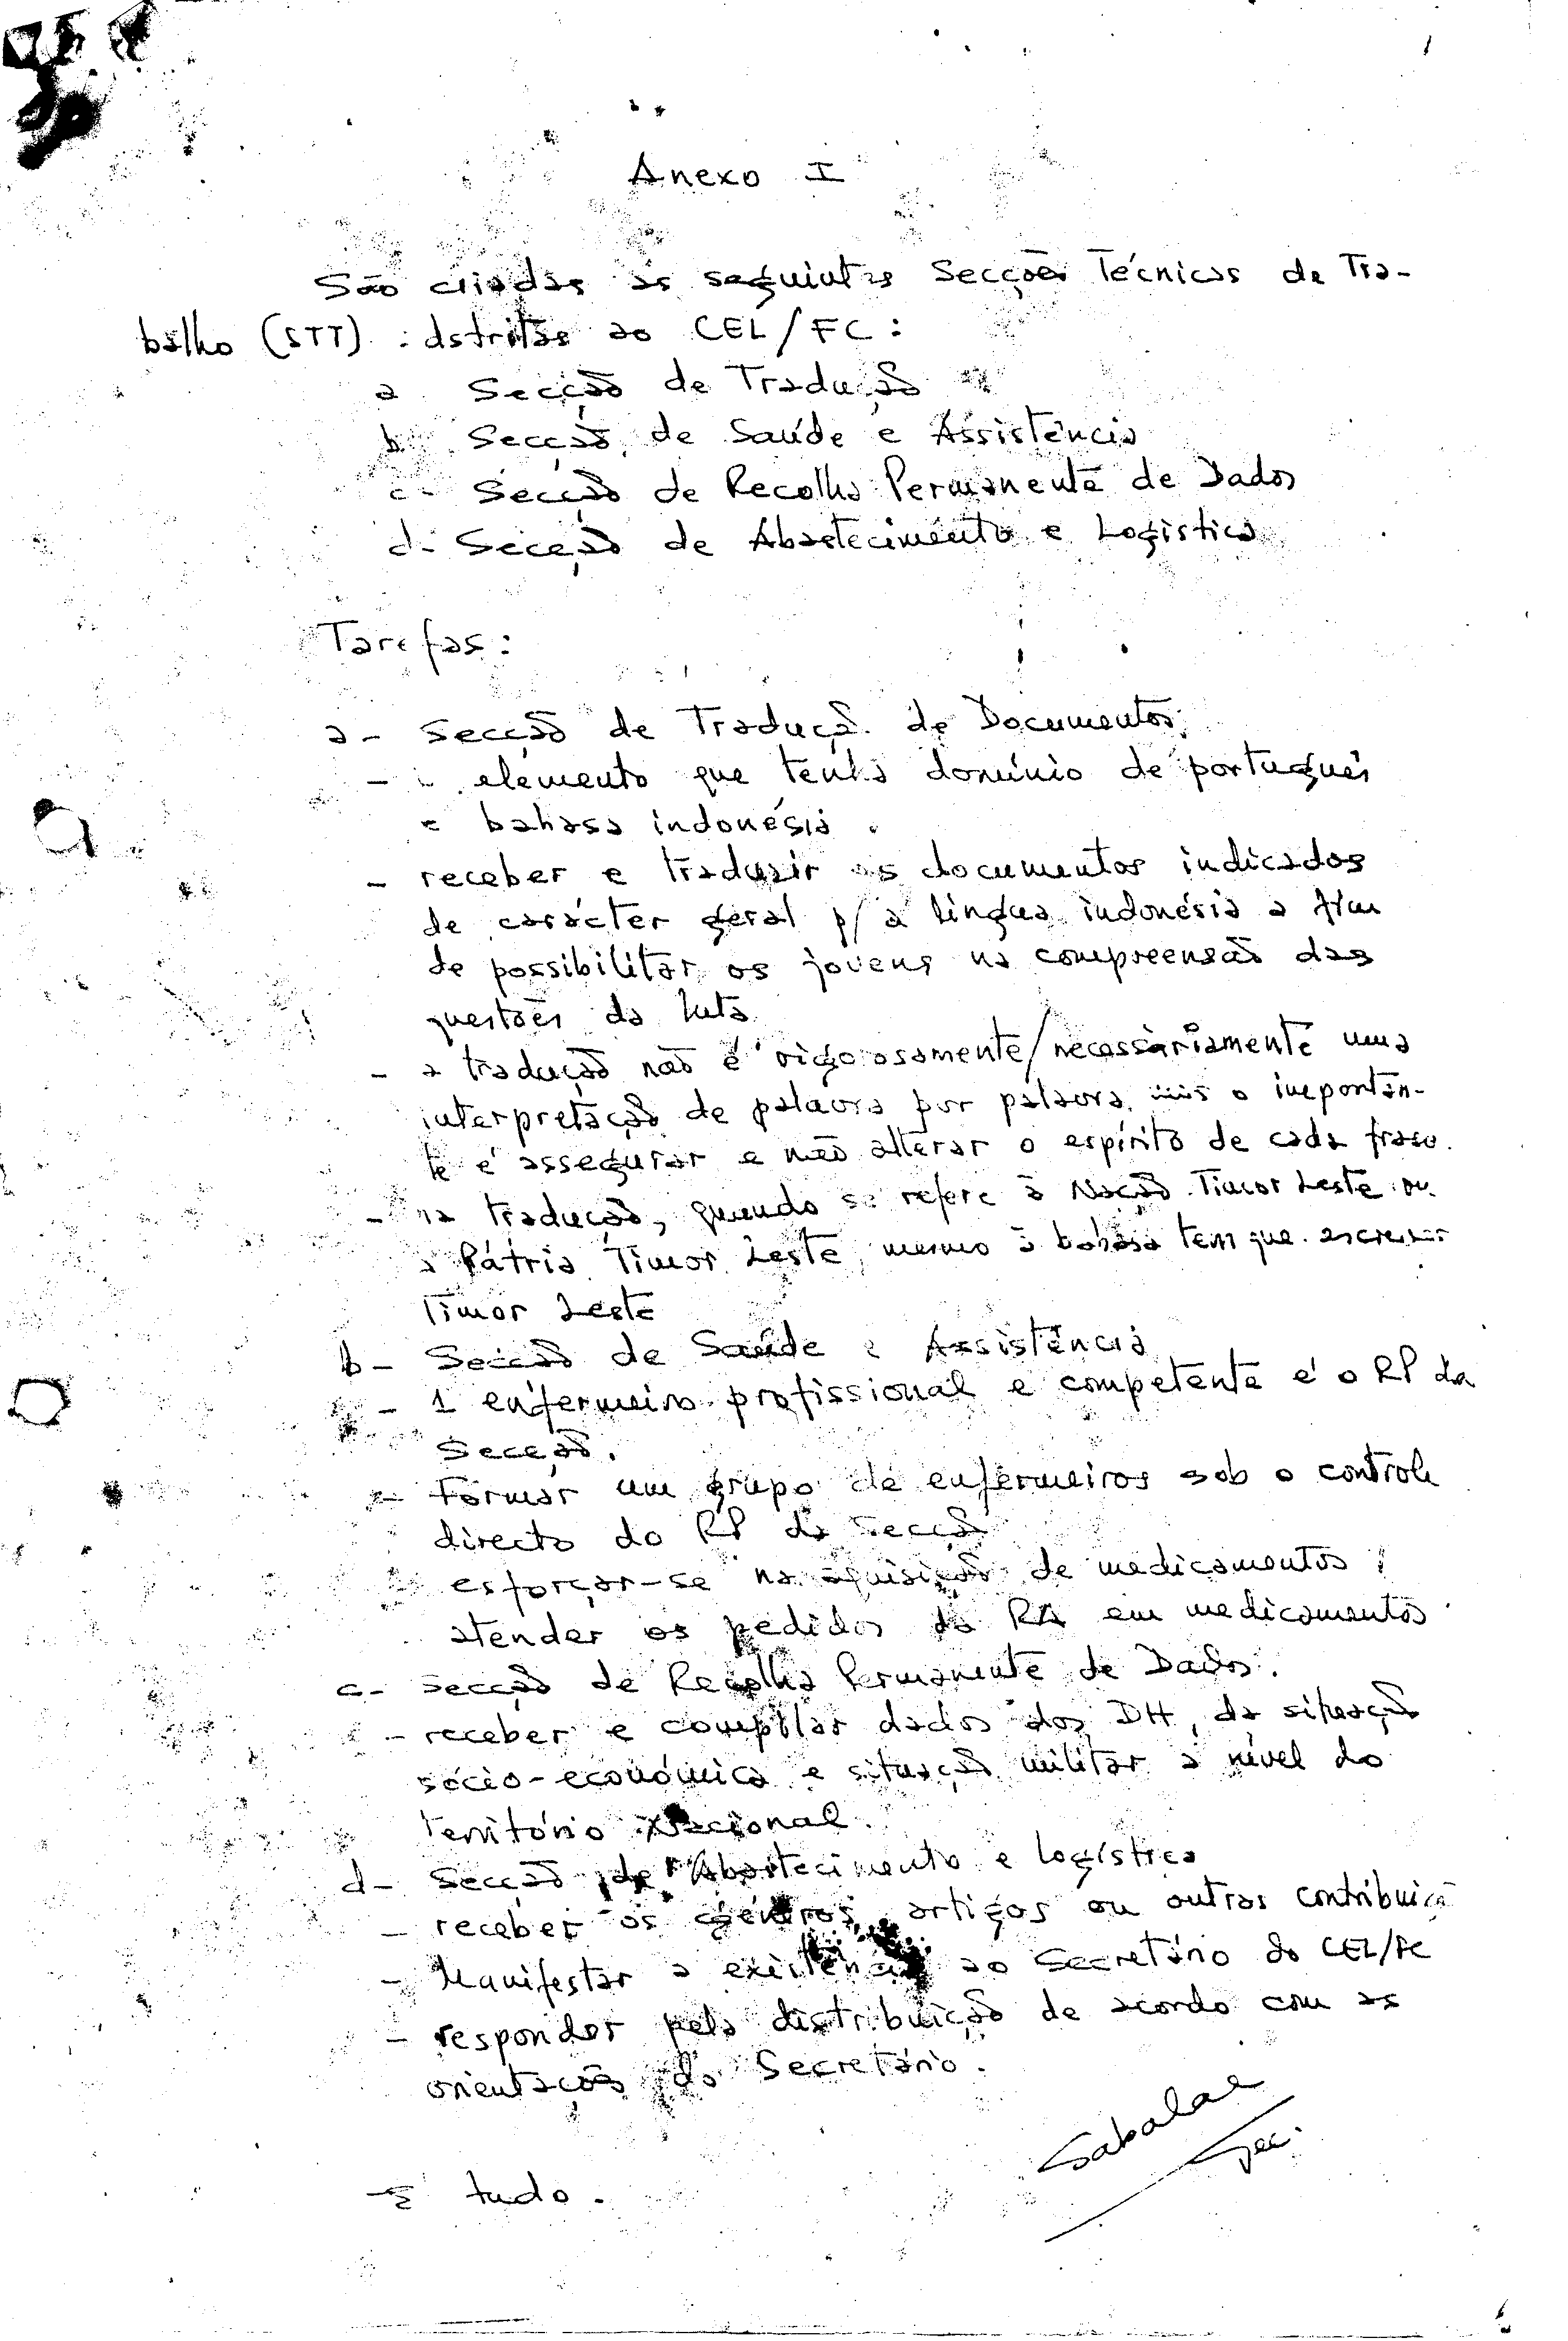 Anexo I
São criadas as seguintes Secções Técnicas de Tra-
balho (STT) adstritas ao CEL/FC:
a Secção de Tradução
b Secção de Saúde e Assistência
c- Secção de Recolha Permanente de Dados
d- Secção de Abastecimento e Logística
Tarefas:
a- Secção de Traduçã. de Documentos
- elemento que tenha domínio de português
e bahasa indonésia.
- receber e traduzir os documentos indicados
de carácter geral p/ a língua indonésia a fim
de possibilitar os jovens na compreensão das
questões da luta
- a tradução não é rigorosamente/necessàriamente uma
interpretação de palavra por palavra, mas o importan-
te é assegurar e não alterar o espírito de cada frase.
- na tradução, quando se refere à Nação Timor Leste ou
a Pátria Timor Leste, mesmo à bahasa tem que escrever
Timor Leste
b- Secção de Saúde e Assistência
- 1 enfermeiro profissional e competente é o RP da
Secção.
- Formar um grupo de enfermeiros sob o controle
directo do RP da Secção
esforçar-se na aquisição de medicamentos;
atender os pedidos da RA em medicamentos
c- Secção de Recolha Permanente de Dados.
- receber e compilar dados dos DH, da situação
sócio-económica e situação militar a nível do
Território Nacional.
d- Secção de Abastecimento e logística
- receber os géneros, artigos ou outras contribuiçõ
- Manifestar a existência ao Secretário do CEL/FC
- responder pela distribuição de acordo com as
orientações do Secretário.
Sabalae
Sec.
É tudo.